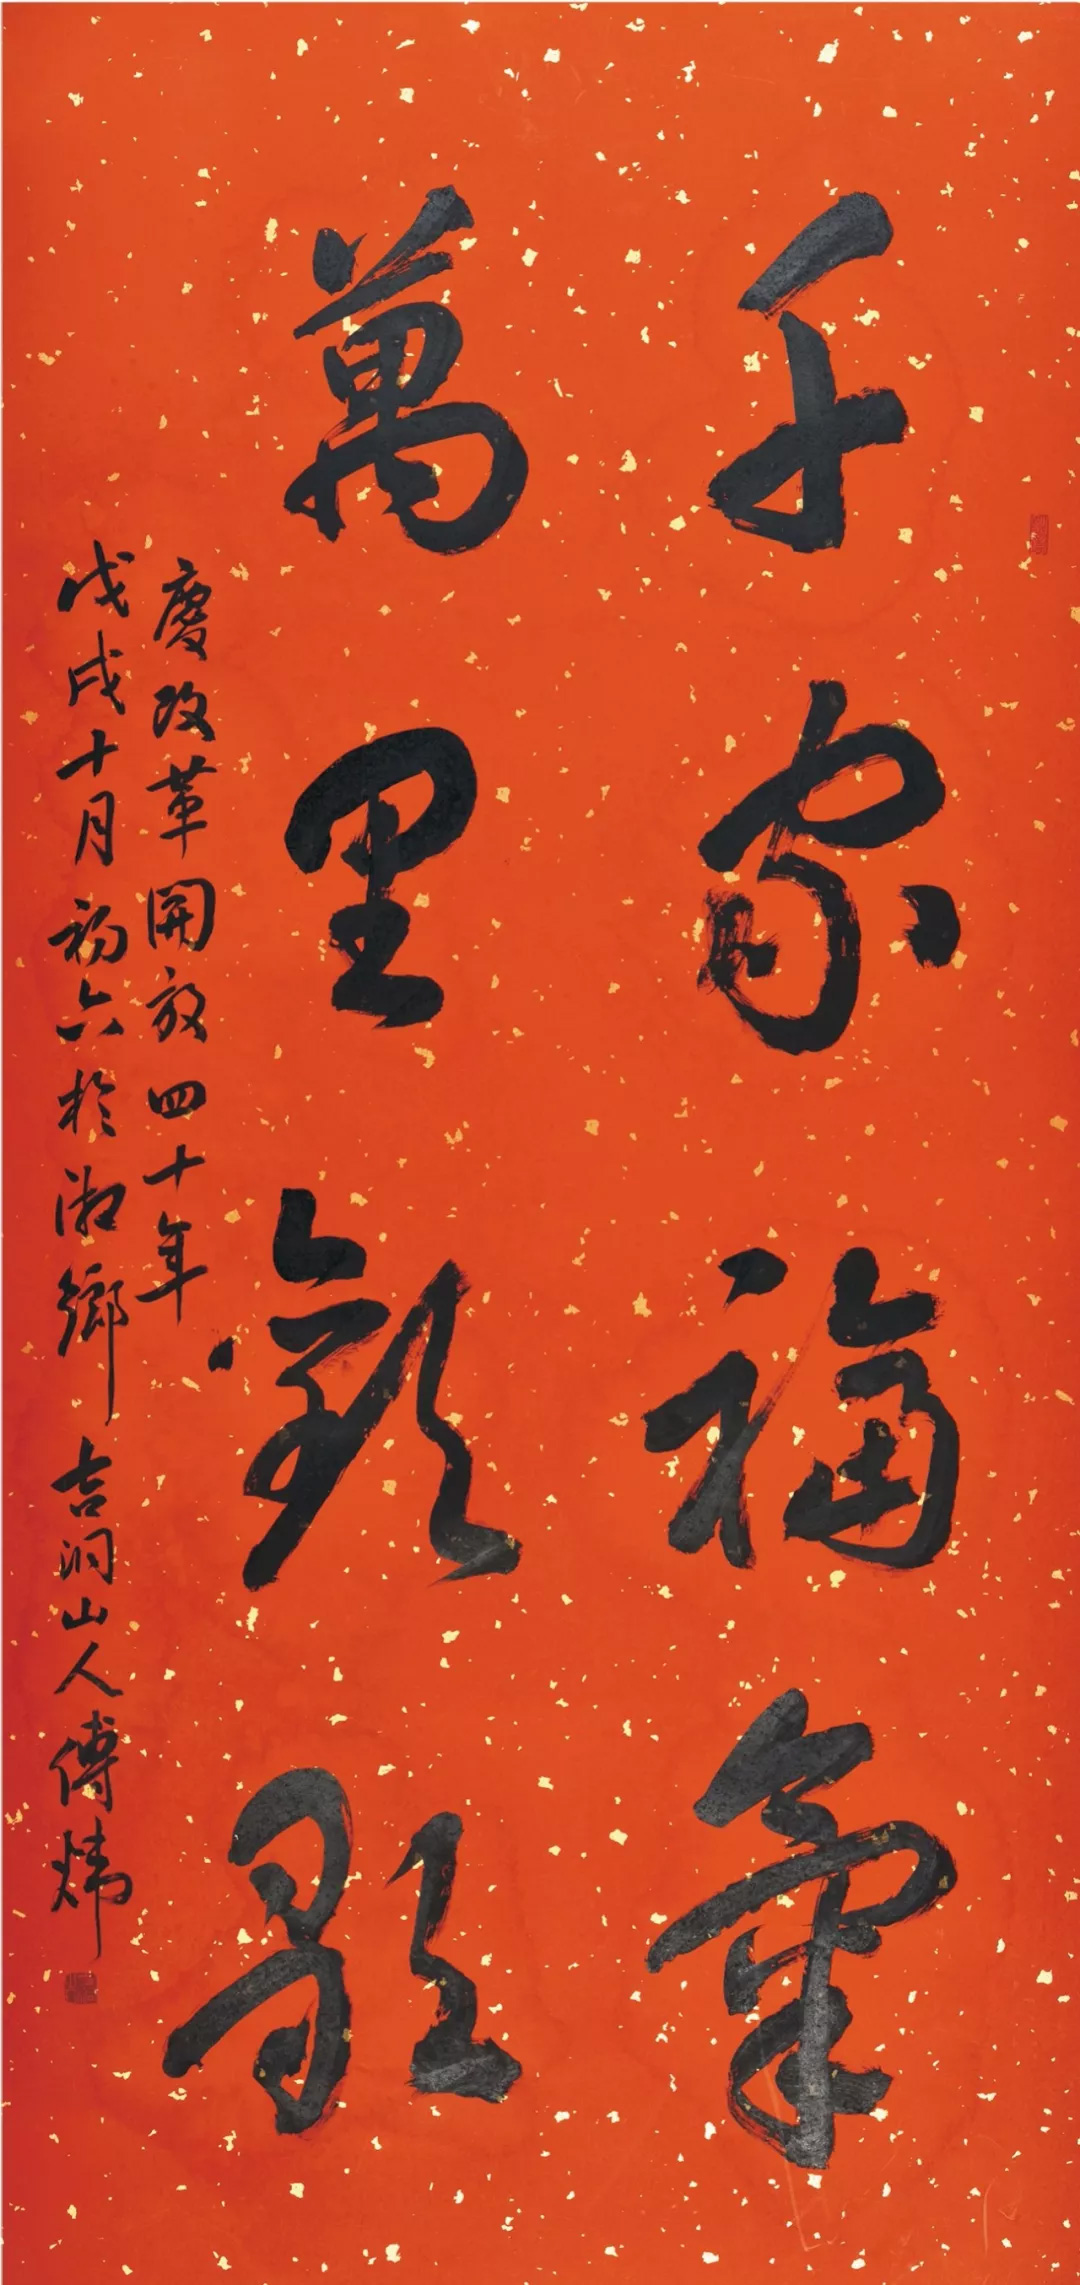 千家福氣
萬里歡歌
慶改革開放四十年
戊戌十月初六於湘鄉吉洞山人傅煒